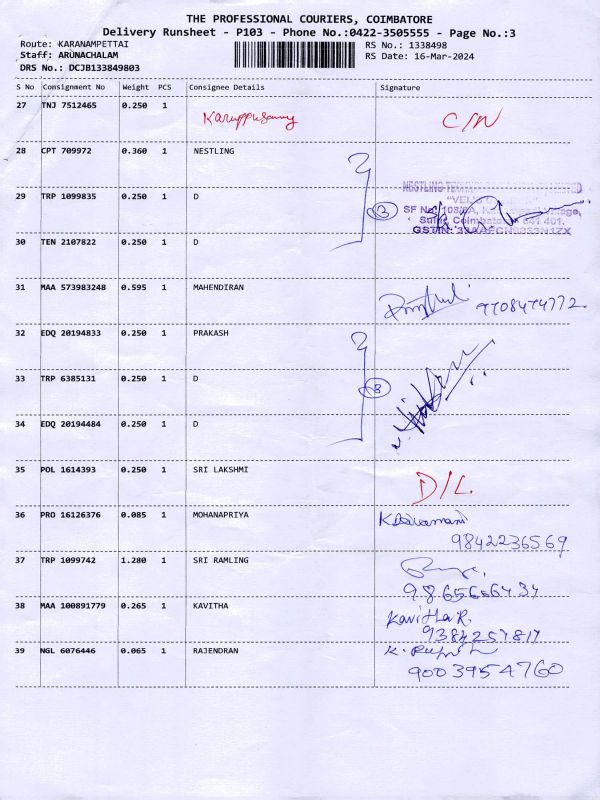 THE PROFESSIONAL COURIERS, COIMBATORE
Delivery Runsheet - P103 - Phone No.:0422-3505555 - Page No.:3
Route: KARANAMPETTAI RS No.: 1338498
Staff: ARUNACHALAM RS Date: 16-Mar-2024
DRS No.: DCJB133849803
S No Consignment No Weight PCS Consignee Details Signature
27 TNJ 7512465 0.250 1 Karuppusamy C/N
28 CPT 709972 0.360 1 NESTLING
29 TRP 1099835 0.250 1 D 3
"VEL
SF No. 108/
Sulur, Coimbatore 641 401.
30 TEN 2107822 0.250 1 D GSTIN:
31 MAA 573983248 0.595 1 MAHENDIRAN 9708474772.
32 EDQ 20194833 0.250 1 PRAKASH
33 TRP 6385131 0.250 1 D 3
34 EDQ 20194484 0.250 1 D
35 POL 1614393 0.250 1 SRI LAKSHMI D/L.
36 PRO 16126376 0.085 1 MOHANAPRIYA
9842236569
37 TRP 1099742 1.280 1 SRI RAMLING
9865666434
38 MAA 100891779 0.265 1 KAVITHA Kavitha R.
9384257817
39 NGL 6076446 0.065 1 RAJENDRAN
9003954760